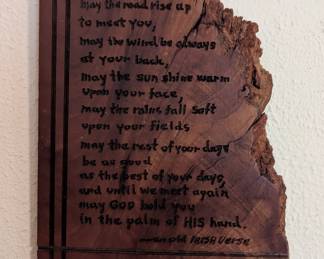 may the road rise up
to meet you,
may the wind be always
at your back,
may the sun shine warm
upon your face,
may the rains fall soft
upon your fields
may the rest of your days
be as good
as the best of your days,
and until we meet again
may GOD hold you
in the palm of HIS hand.
old IRISH Verse